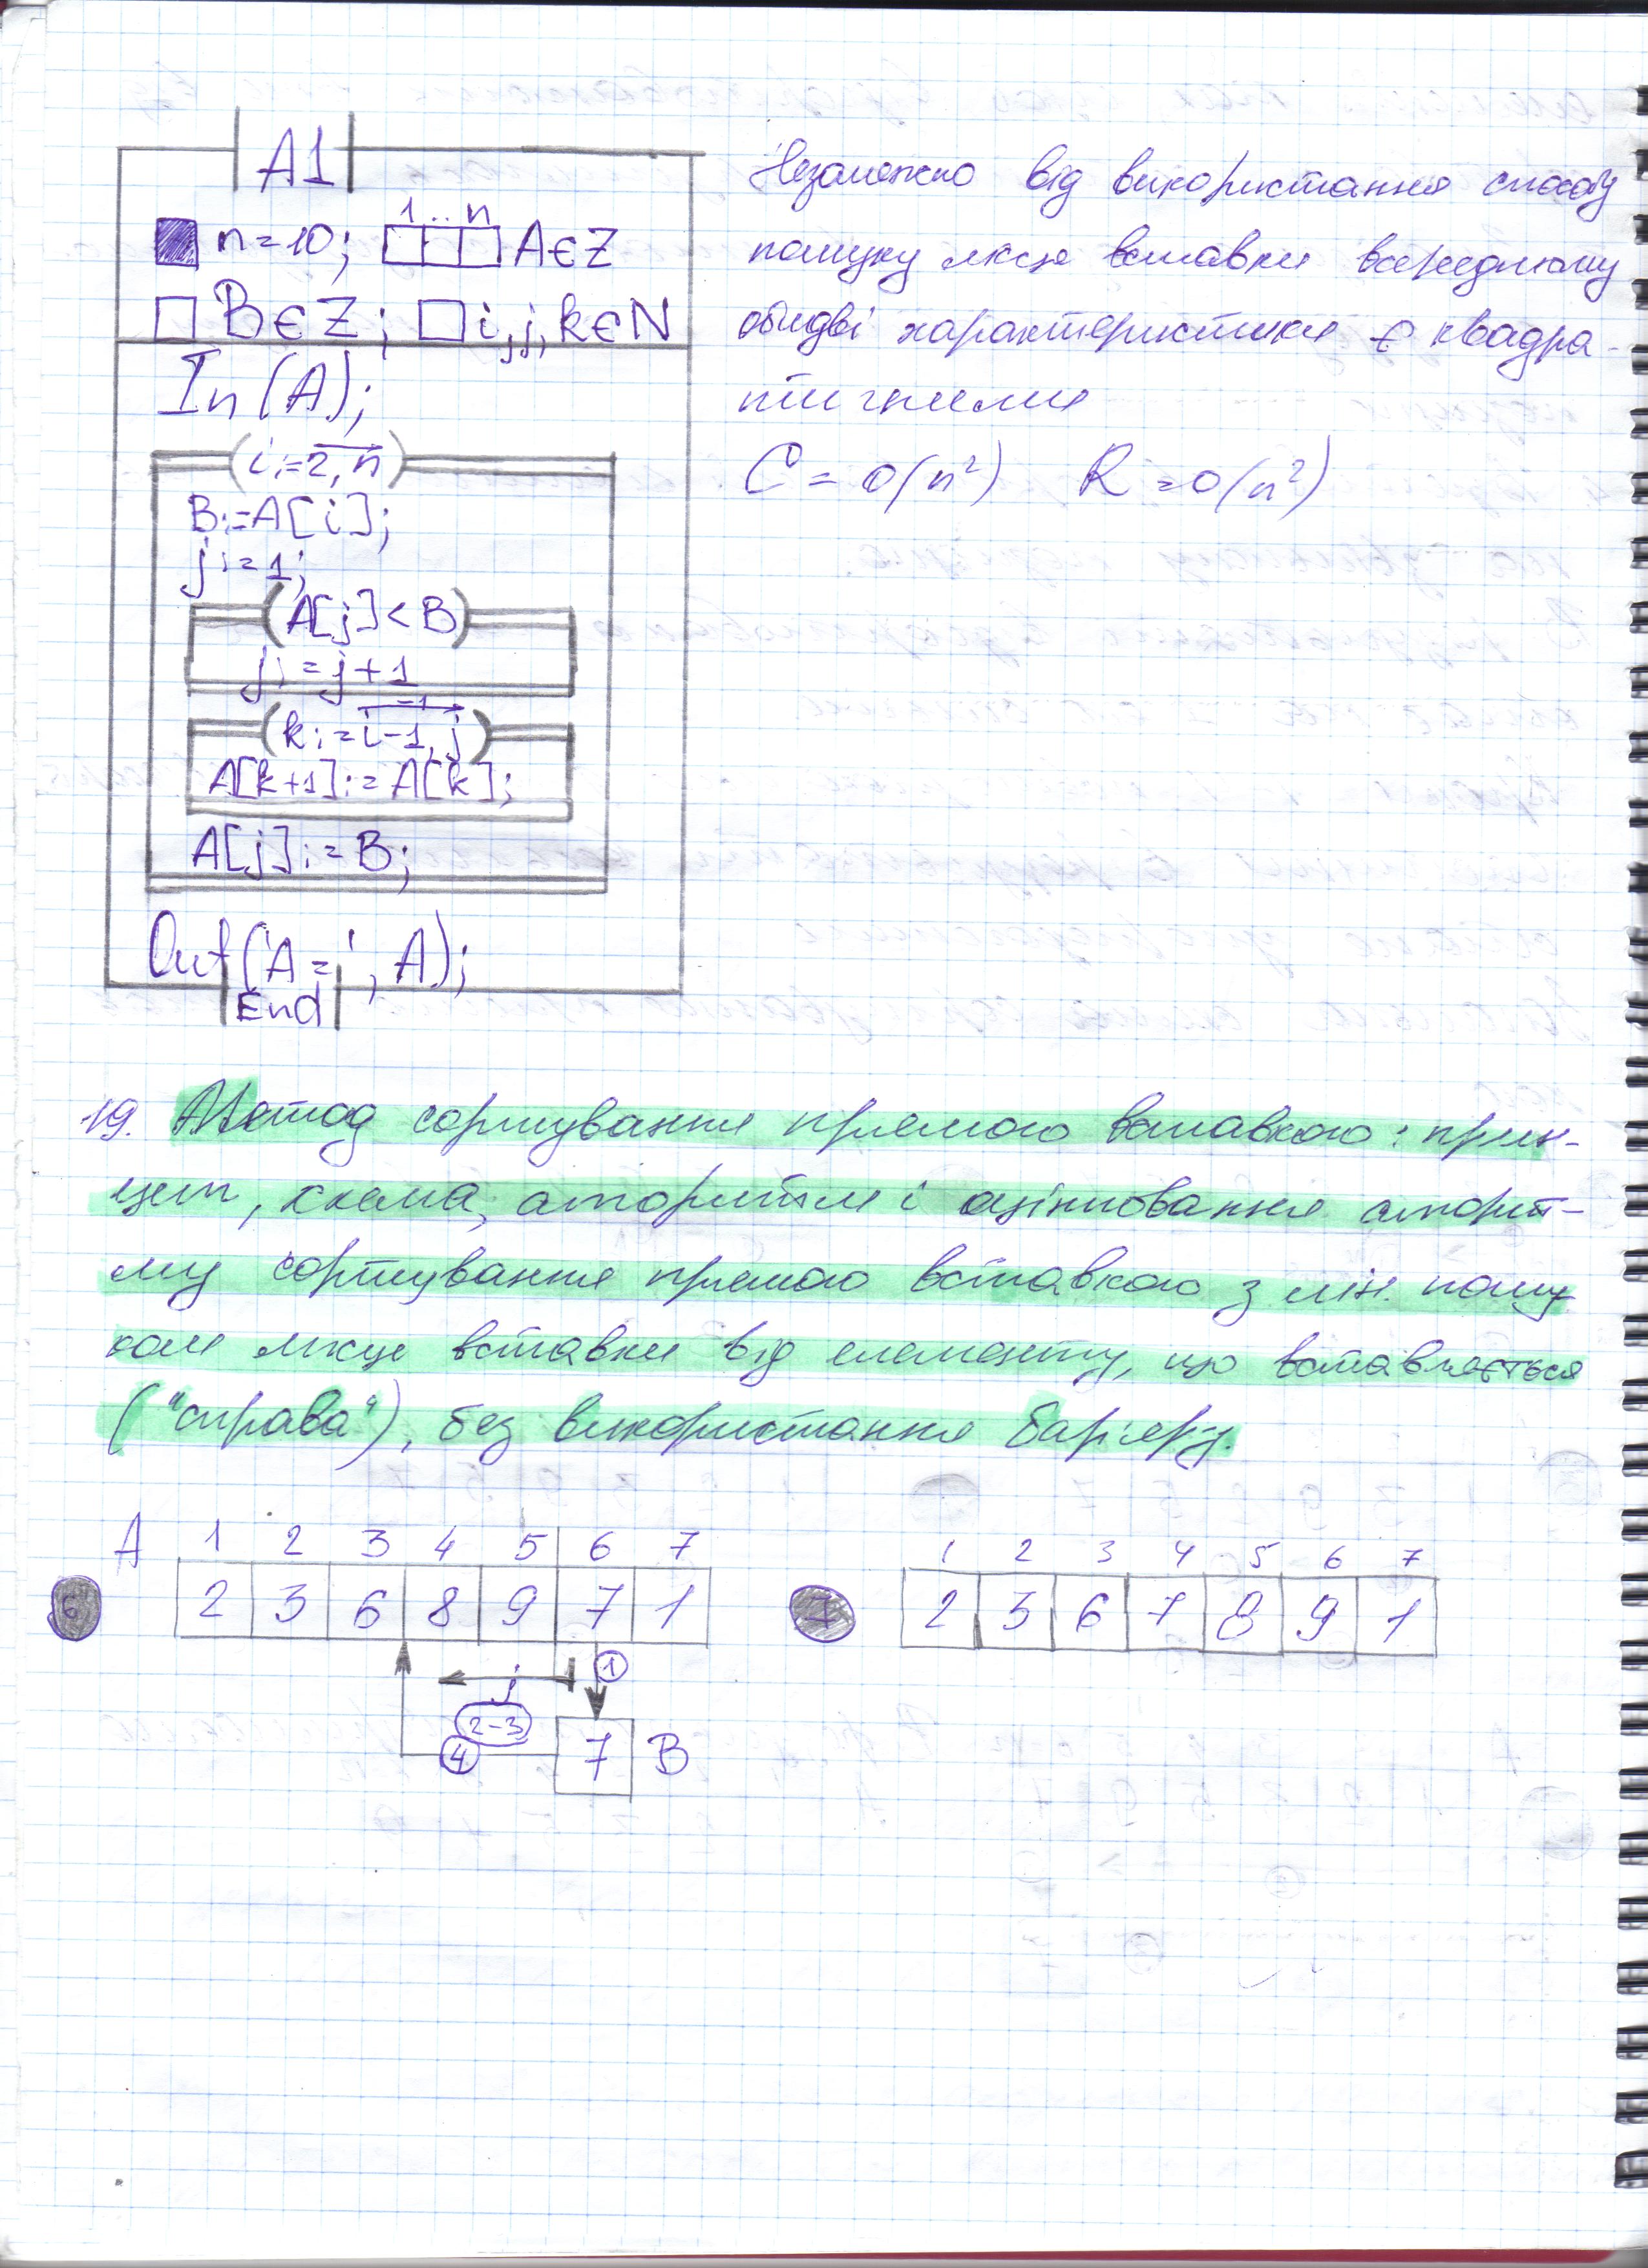 A1
n=10; 1..n A∈Z
B∈Z; i,j,k∈N
In(A);
(i:=2,n)
B:=A[i];
j:=1;
(A[j]<B)
j:=j+1
-1
(k:=i-1,j)
A[k+1]:=A[k];
A[j]:=B;
Out('A=', A);
End
Незалежно від використання способу
пошуку місця вставки всередньому
обидві характеристики є квадра-
тичними
C = O(n²) R = O(n²)
19. Метод сортування прямою вставкою: прин-
цип, схема, алгоритм і оцінювання алгорит-
му сортування прямою вставкою з лін. пошу-
ком місця вставки від елементу, що вставляється
("справа"), без використання бар'єру.
A 1 2 3 4 5 6 7
6 2 3 6 8 9 7 1
j 1
2-3
4 7 B
1 2 3 4 5 6 7
7 2 3 6 7 8 9 1